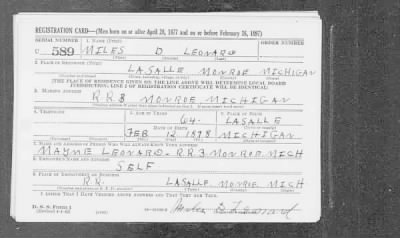 REGISTRATION CARD—(Men born on or after April 28, 1877 and on or before February 16, 1897)
SERIAL NUMBER 1. NAME (Print) ORDER NUMBER
U 589 MILES D LEONARD
2. PLACE OF RESIDENCE (Print)
LASALLE MONROE MICHIGAN
[THE PLACE OF RESIDENCE GIVEN ON THE LINE ABOVE WILL DETERMINE LOCAL BOARD
JURISDICTION; LINE 2 OF REGISTRATION CERTIFICATE WILL BE IDENTICAL]
3. MAILING ADDRESS
RR3 MONROE MICHIGAN
4. TELEPHONE 5. AGE IN YEARS 6. PLACE OF BIRTH
64 LASALLE
DATE OF BIRTH
FEB 12 1878 MICHIGAN
7. NAME AND ADDRESS OF PERSON WHO WILL ALWAYS KNOW YOUR ADDRESS
MAYNE LEONARD - RR3 MONROE MICH
8. EMPLOYER'S NAME AND ADDRESS
SELF
9. PLACE OF EMPLOYMENT OR BUSINESS
RR. LASALLE MONROE MICH
I AFFIRM THAT I HAVE VERIFIED ABOVE ANSWERS AND THAT THEY ARE TRUE.
D. S. S. Form 1
(Revised 4-1-42) Miles D Leonard